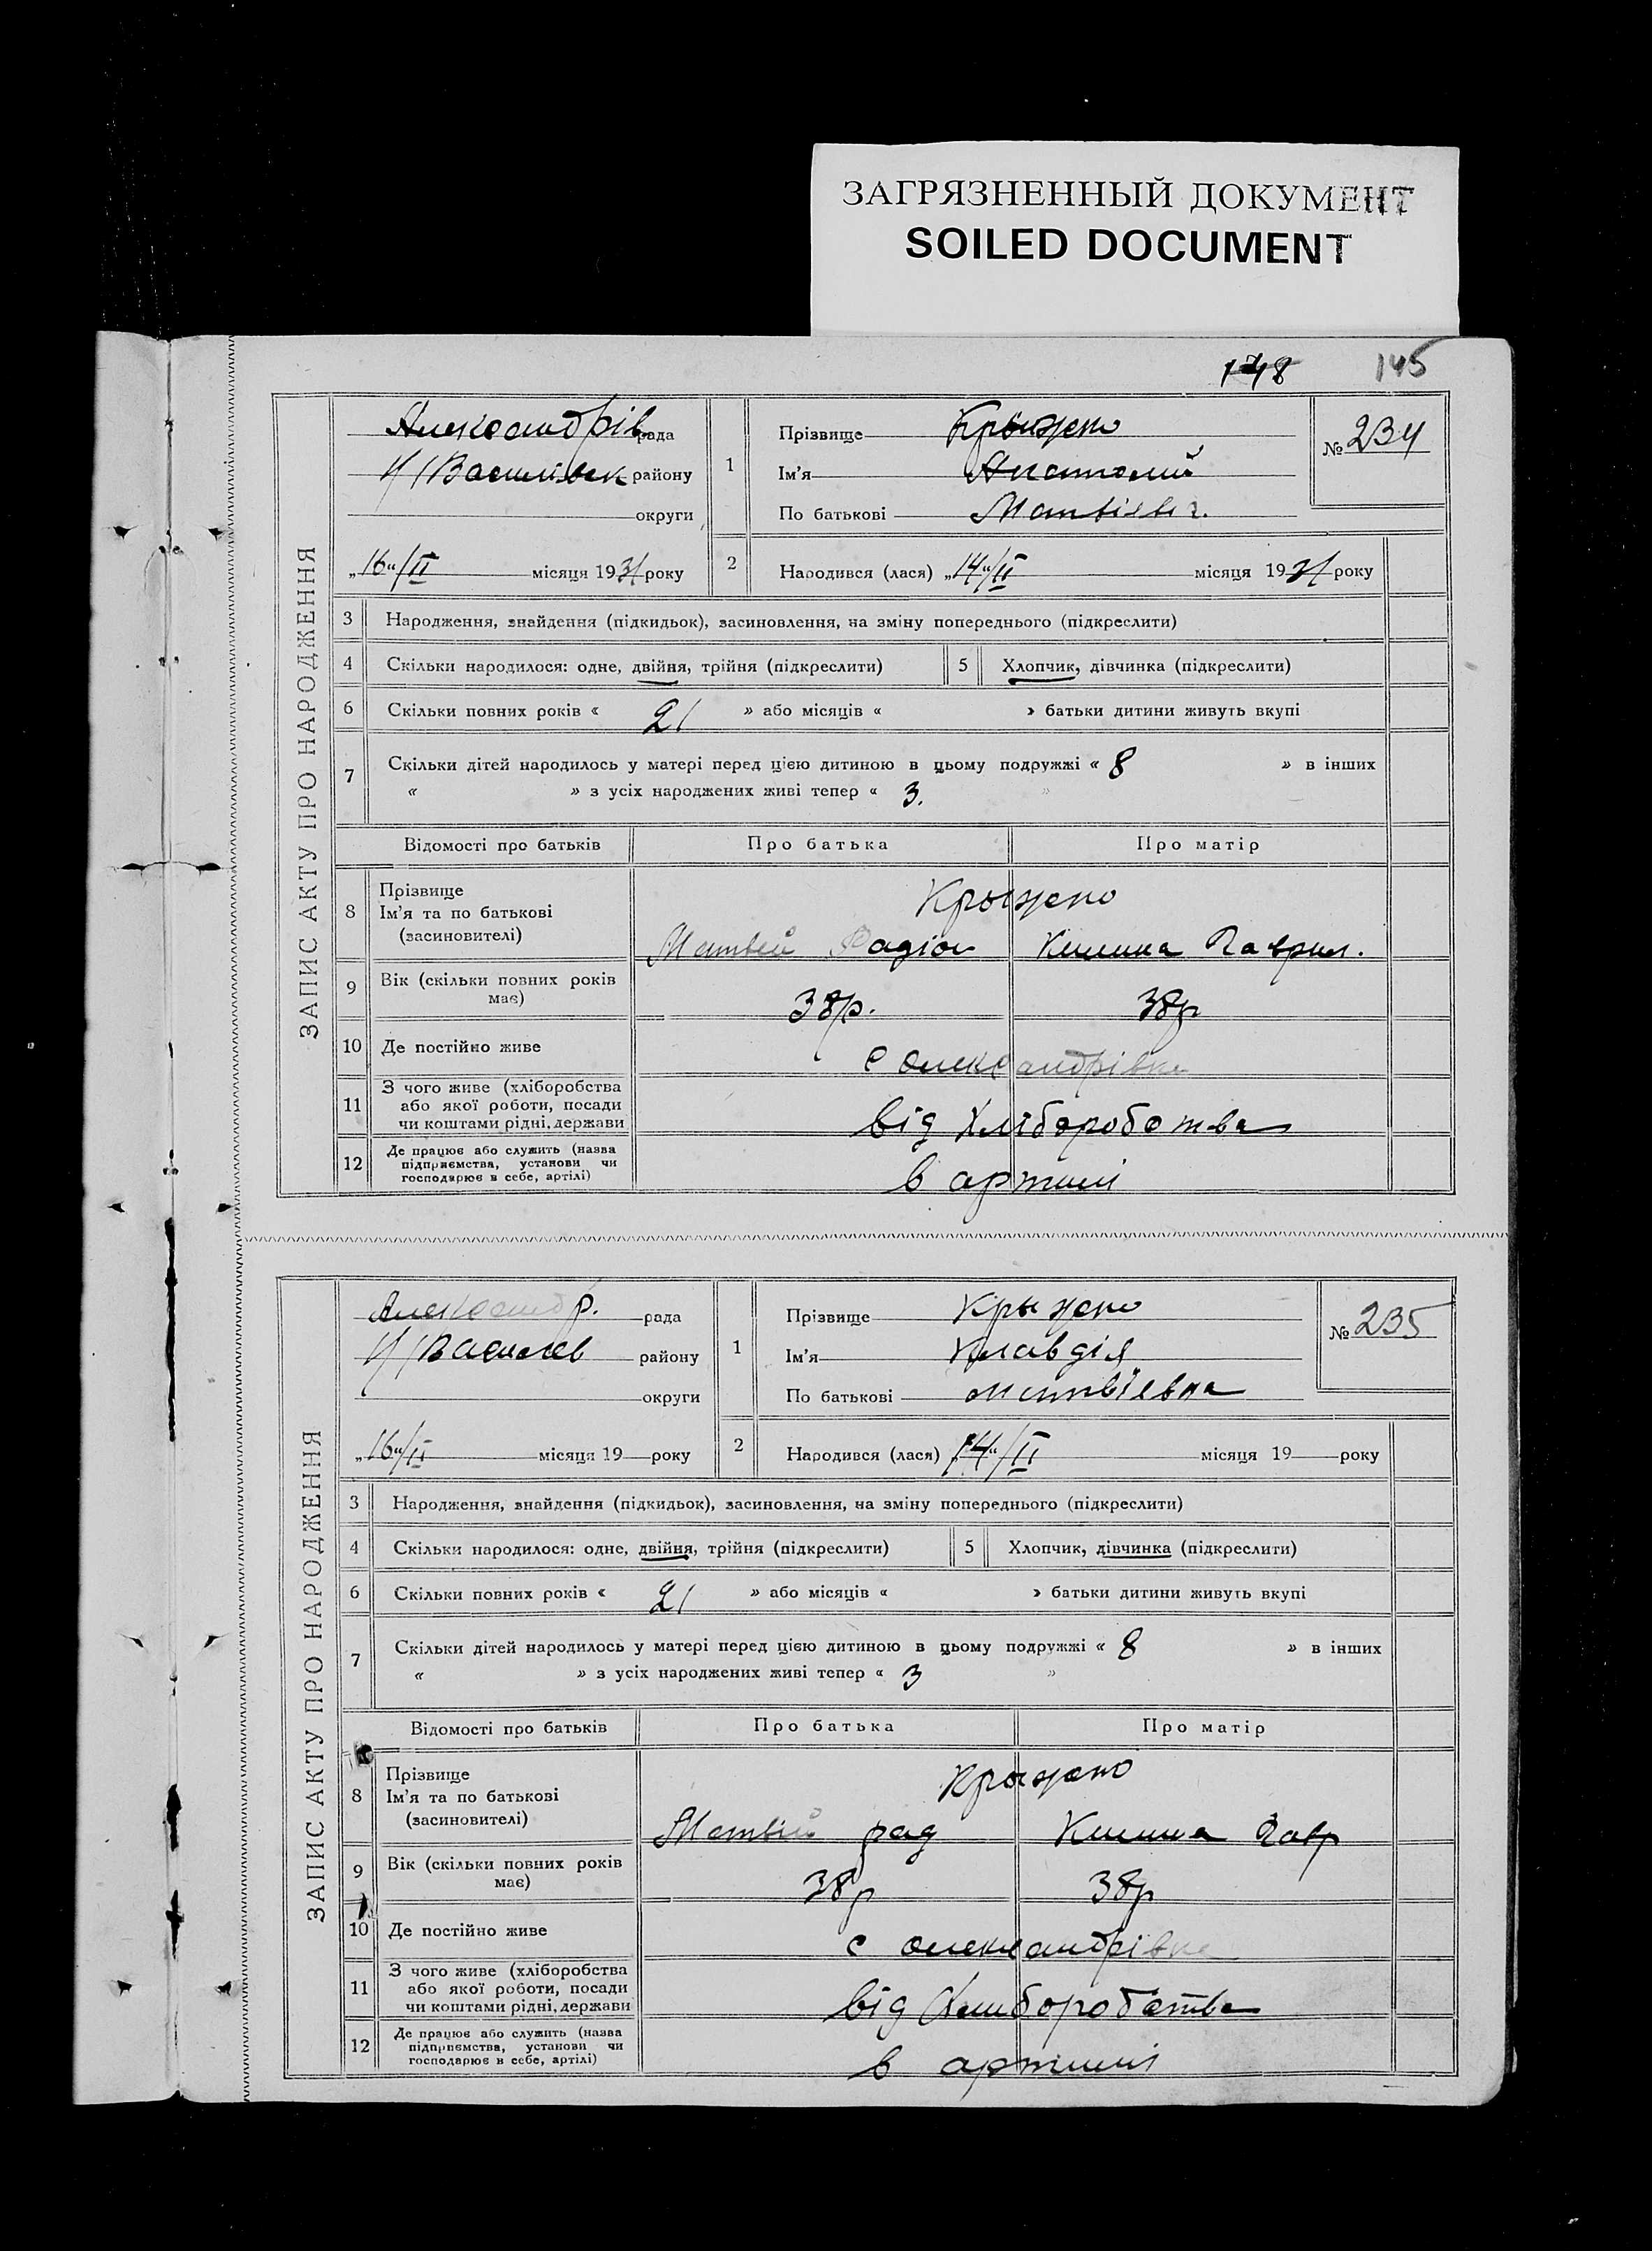 ЗАГРЯЗНЕННЫЙ ДОКУМЕНТ
SOILED DOCUMENT
148 145
ЗАПИС АКТУ ПРО НАРОДЖЕННЯ
Александрів рада
Н/Василівск району
округи
„16“/II місяця 1931 року
1 Прізвище Крыжено
Ім'я Анатолий
По батькові Матвієвич.
№ 234
2 Народився (лася) „14“/II місяця 1931 року
3 Народження, знайдення (підкидьок), засиновлення, на зміну попереднього (підкреслити)
4 Скільки народилося: одне, двійня, трійня (підкреслити) 5 Хлопчик, дівчинка (підкреслити)
6 Скільки повних років « 21 » або місяців « » батьки дитини живуть вкупі
7 Скільки дітей народилось у матері перед цією дитиною в цьому подружжі « 8 » в інших
« » з усіх народжених живі тепер « 3. »
Відомості про батьків Про батька Про матір
8 Прізвище
Ім'я та по батькові
(засновителі)
Крыжено
Матвей Радіон Килина Гаврил.
9 Вік (скільки повних років
має)
38р. 38р
10 Де постійно живе с Олександрівка
11 З чого живе (хліборобства
або якої роботи, посади
чи коштами рідні, держави
від Хліборобства
12 Де працює або служить (назва
підприємства, установи чи
господарює в себе, артілі)
в артилі
ЗАПИС АКТУ ПРО НАРОДЖЕННЯ
Александр. рада
Н/Василев району
округи
„16“/II місяця 19 року
1 Прізвище Крыжено
Ім'я Клавдія
По батькові Матвіевна
№ 235
2 Народився (лася) „14“/II місяця 19 року
3 Народження, знайдення (підкидьок), засиновлення, на зміну попереднього (підкреслити)
4 Скільки народилося: одне, двійня, трійня (підкреслити) 5 Хлопчик, дівчинка (підкреслити)
6 Скільки повних років « 21 » або місяців « » батьки дитини живуть вкупі
7 Скільки дітей народилось у матері перед цією дитиною в цьому подружжі « 8 » в інших
« » з усіх народжених живі тепер « 3 »
Відомості про батьків Про батька Про матір
8 Прізвище
Ім'я та по батькові
(засиновителі)
Крыжено
Матвій рад Килина Гавр
9 Вік (скільки повних років
має)
38р 38р
10 Де постійно живе с Олександрівка
11 З чого живе (хліборобства
або якої роботи, посади
чи коштами рідні, держави
від Хлиборобства
12 Де працює або служить (назва
підприємства, установи чи
господарює в себе, артілі)
в артилі